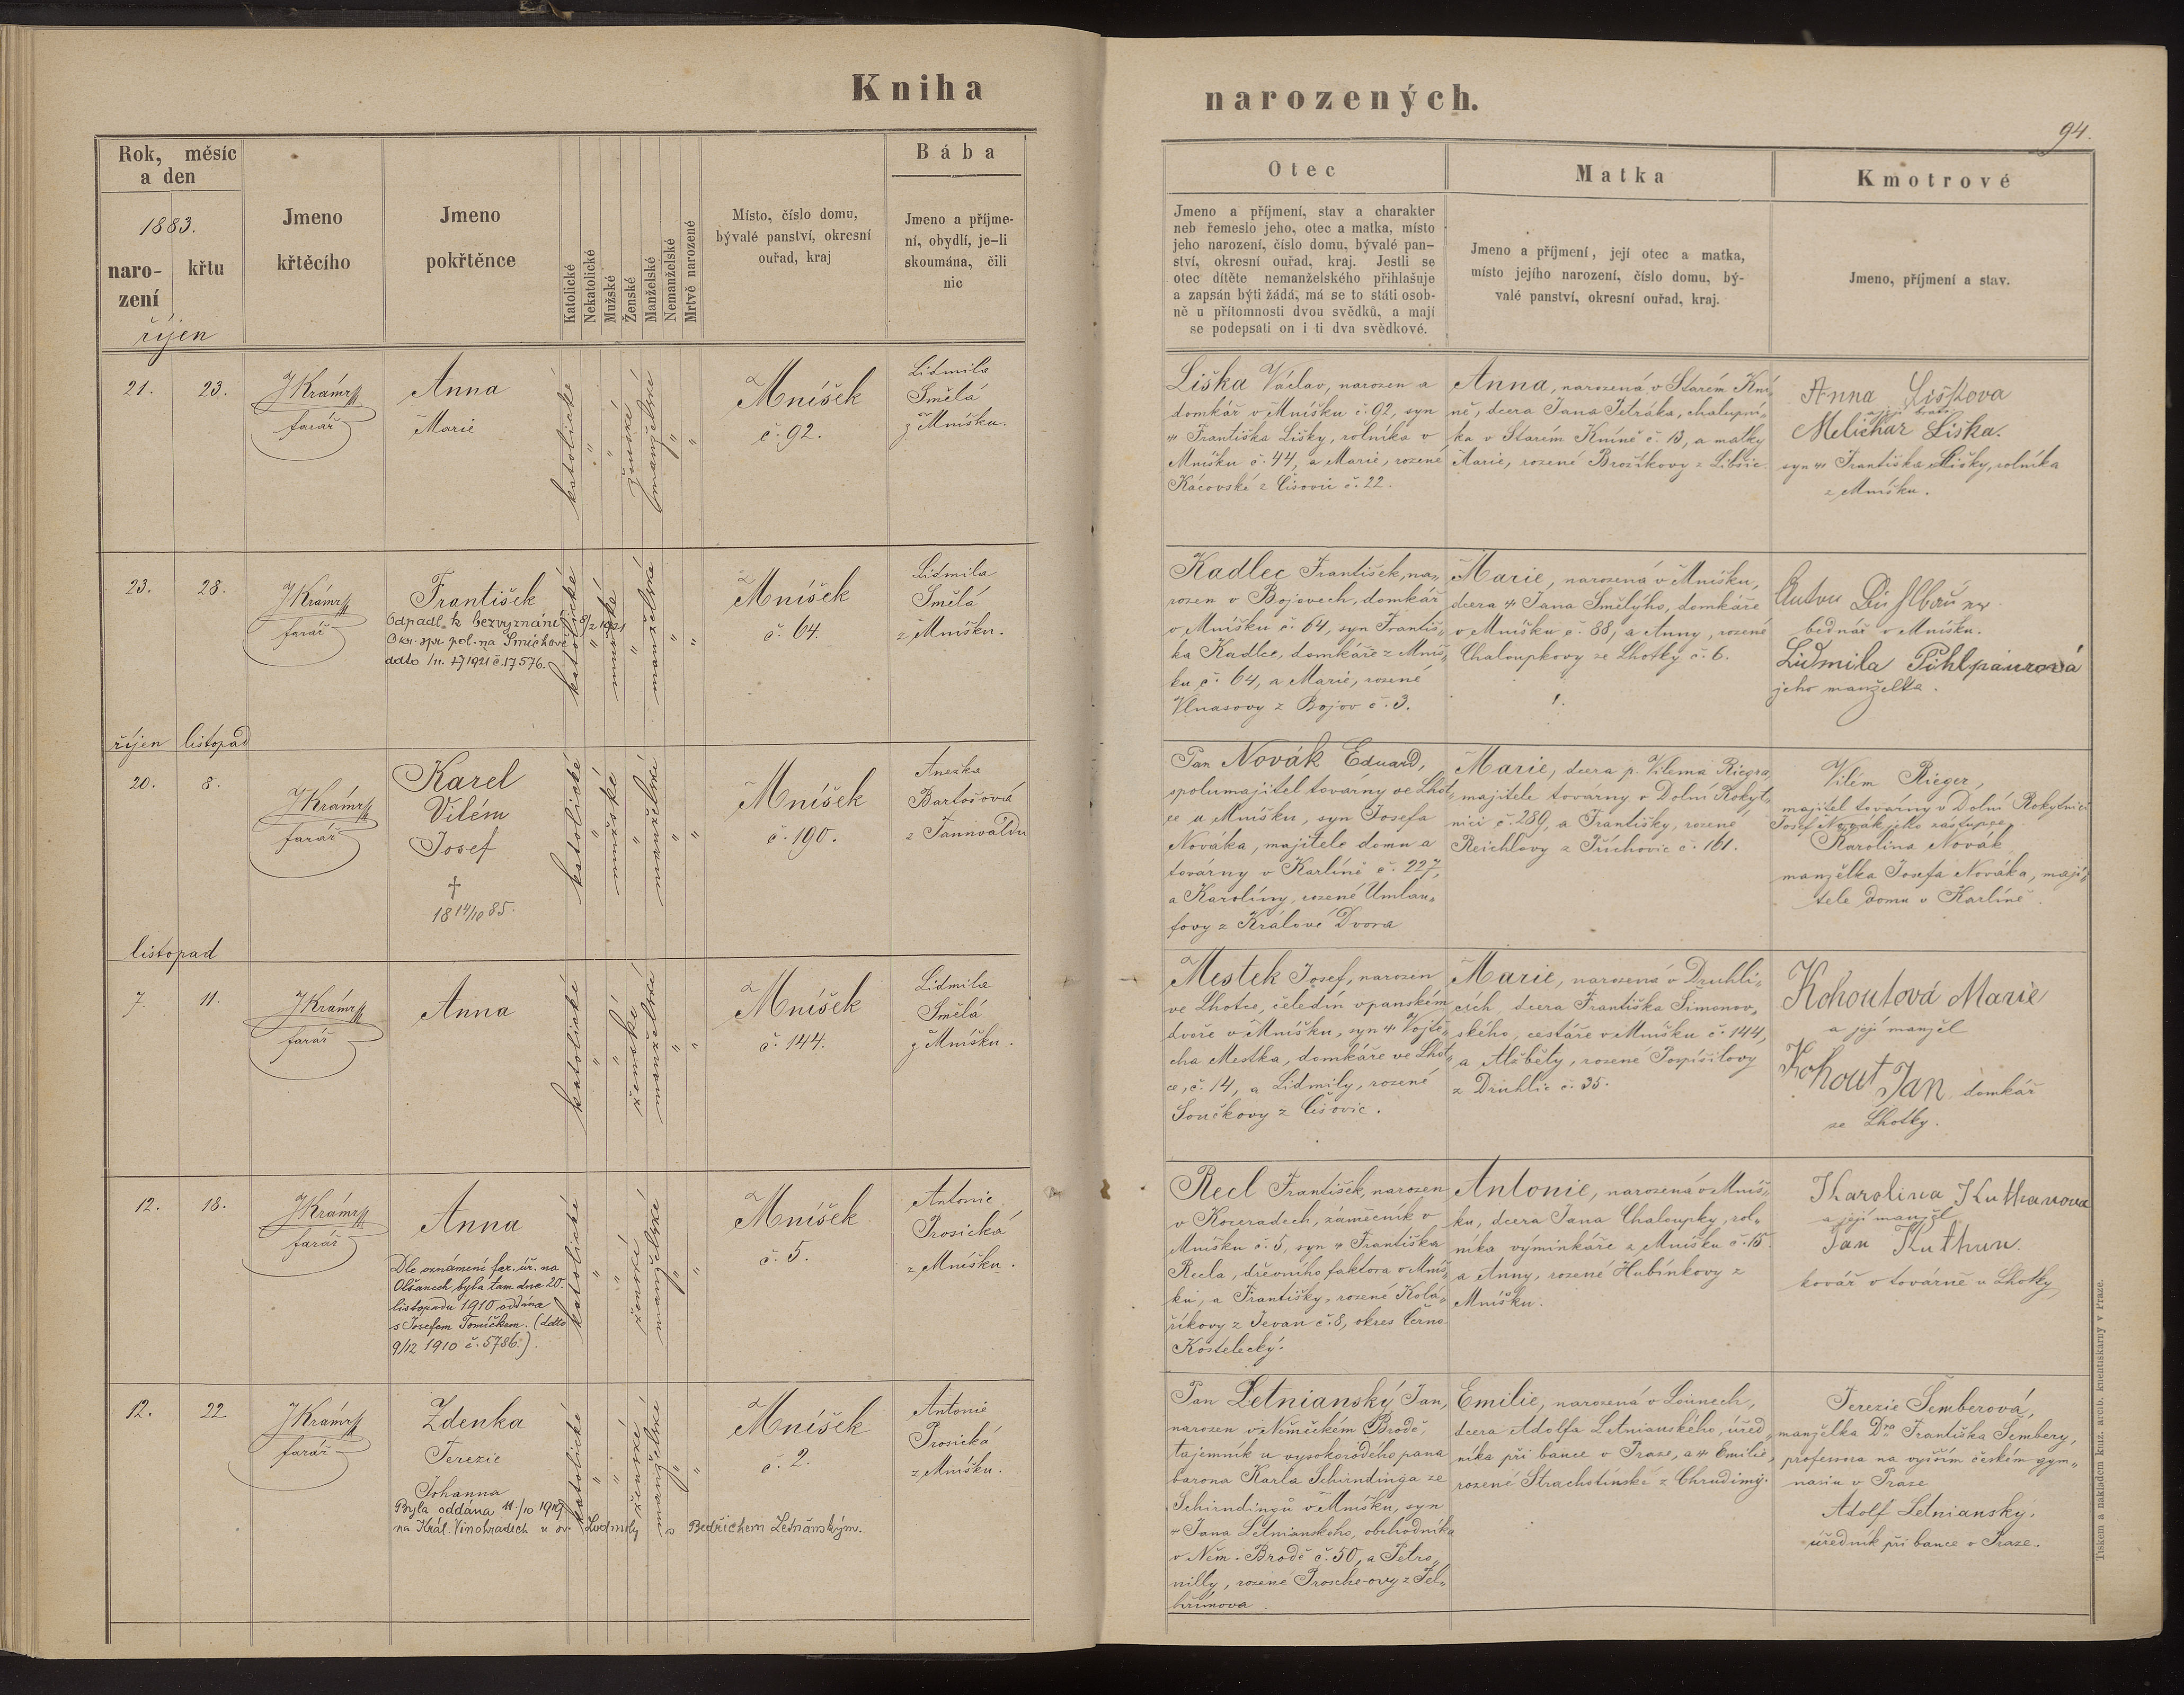 Kniha
narozených.
94.
Rok, měsíc
a den
1883.
naro-
zení
křtu
říjen
Jmeno
křtěcího
Jmeno
pokřtěnce
Katolické
Nekatolické
Mužské
Ženské
Manželské
Nemanželské
Mrtvě narozené
Místo, číslo domu,
bývalé panství, okresní
ouřad, kraj
Bába
Jmeno a příjme-
ní, obydlí, je-li
skoumána, čili
nic
Otec
Jmeno a příjmení, stav a charakter
neb řemeslo jeho, otec a matka, místo
jeho narození, číslo domu, bývalé pan-
ství, okresní ouřad, kraj. Jestli se
otec dítěte nemanželského přihlašuje
a zapsán býti žádá, má se to státi osob-
ně u přítomnosti dvou svědků, a mají
se podepsati on i ti dva svědkové.
Matka
Jmeno a příjmení, její otec a matka,
místo jejího narození, číslo domu, bý-
valé panství, okresní ouřad, kraj.
Kmotrové
Jmeno, příjmení a stav.
21.
23.
farář
Anna
Marie
katolické
"
"
ženské
manželské
"
"
Mníšek
č. 92.
Lidmila
Smělá
z Mníšku.
Liška Václav, narozen a
domkář v Mníšku č. 92, syn
Františka Lišky, rolníka v
Mníšku č. 44, a Marie, rozené
Kácovské z Čisovic č. 22.
Anna, narozená v Starém Kní-
ně, dcera Jana Petráka, chalupní-
ka v Starém Kníně č. 13, a matky
Marie, rozené Brožíkovy z Libšic
Anna Lišková
a její bratr
Melichar Liška.
syn Františka Lišky, rolníka
z Mníšku.
23.
28.
farář
František
Odpadl k bezvyznání 8/2 1921
Okr. spr. pol. na Smíchově
ddto 1921 č. 17576.
katolické
"
mužské
"
manželské
"
"
Mníšek
č. 64.
Lidmila
Smělá
z Mníšku.
Kadlec František, na-
rozen v Bojovech, domkář
v Mníšku č. 64, syn Františ-
ka Kadlce, domkáře z Mníš-
ku č. 64, a Marie, rozené
Vlnasovy z Bojov č. 3.
Marie, narozená v Mníšku,
dcera Jana Smělýho, domkáře
v Mníšku č. 88, a Anny, rozené
Chaloupkovy ze Lhotky č. 6.
bednář v Mníšku.
Lidmila Pihlpaurová
jeho manželka.
říjen listopad
20.
8.
farář
Karel
Vilém
Josef
†
18 14/10 85.
katolické
"
mužské
"
manželské
"
"
Mníšek
č. 190.
Anežka
Bartošová
z Tannwaldu
Pan Novák Eduard,
spolumajitel továrny ve Lhot-
ce u Mníšku, syn Josefa
Nováka, majitele domu a
továrny v Karlíně č. 227,
a Karolíny, rozené Umlau-
fovy z Králové Dvora
Marie, dcera p. Vilema Riegra,
majitele továrny v Dolní Rokyt-
nici č. 289, a Františky, rozené
Reichlovy z Púchovic č. 161.
Vilém Rieger,
majitel továrny v Dolní Rokytnici
Josef Novák jeho zástupce
Karolina Novák
manželka Josefa Nováka, maji-
tele domu v Karlíně.
listopad
7.
11.
farář
Anna
katolické
"
"
ženské
manželské
"
"
Mníšek
č. 144.
Lidmila
Smělá
z Mníšku.
Mestek Josef, narozen
ve Lhotce, čeledín v panském
dvoře v Mníšku, syn Vojtě-
cha Mestka, domkáře ve Lhot-
ce, č. 14, a Lidmily, rozené
Součkovy z Čišovic.
Marie, narozená v Druhli-
cích dcera Františka Šimonov-
ského, cestáře v Mníšku č. 144,
a Alžběty, rozené Pospíšilovy
z Druhlic č. 35.
Kohoutová Marie
a její manžel
Kohout Jan, domkář
ze Lhotky.
12.
18.
farář
Anna
Dle oznámení far. úř. na
Olšanech byla tam dne 20.
listopadu 1910 oddána
s Josefem Tomíčkem. (ddto
9/12 1910 č. 5786.).
katolické
"
"
ženské
manželské
"
"
Mníšek
č. 5.
Antonie
Prosická
z Mníšku.
Recl František, narozen
v Kozeradech, zámečník v
Mníšku č. 5, syn Františka
Recla, dřevního faktora v Mníš-
ku, a Františky, rozené Kolá-
říkovy z Jevan č. 8, okres Černo
Kostelecký.
Antonie, narozená v Mníš-
ku, dcera Jana Chaloupky, rol-
níka výminkáře z Mníšku č. 15.
a Anny, rozené Hubínkovy z
Mníšku.
Karolina Kuthanova
a její manžel
Jan Kuthan.
kovář v továrně u Lhotky
12.
22
farář
Zdenka
Terezie
Johanna
Byla oddána 11./10 1919
na Král. Vinohradech u sv. Ludmily s Bedřichem Letňanským.
katolické
"
"
ženské
manželské
"
"
Mníšek
č. 2.
Antonie
Prosická
z Mníšku.
Pan Letnianský Jan,
narozen v Německém Brodě,
tajemník u vysokorodého pana
barona Karla Schirndinga ze
Schirndingů v Mníšku, syn
Jana Letnianského, obchodníka
v Něm. Brodě č. 50, a Petro-
nilly, rozené Proscheovy z Pel-
hřimova.
Emilie, narozená v Lounech,
dcera Adolfa Letnianského, úřed-
níka při bance v Praze, a Emilie,
rozené Strachotínské z Chrudimi.
Terezie Šemberová,
manželka Dra Františka Šembery,
professora na vyšším českém gym-
nasiu v Praze
Adolf Letniansky,
úředník při bance v Praze.